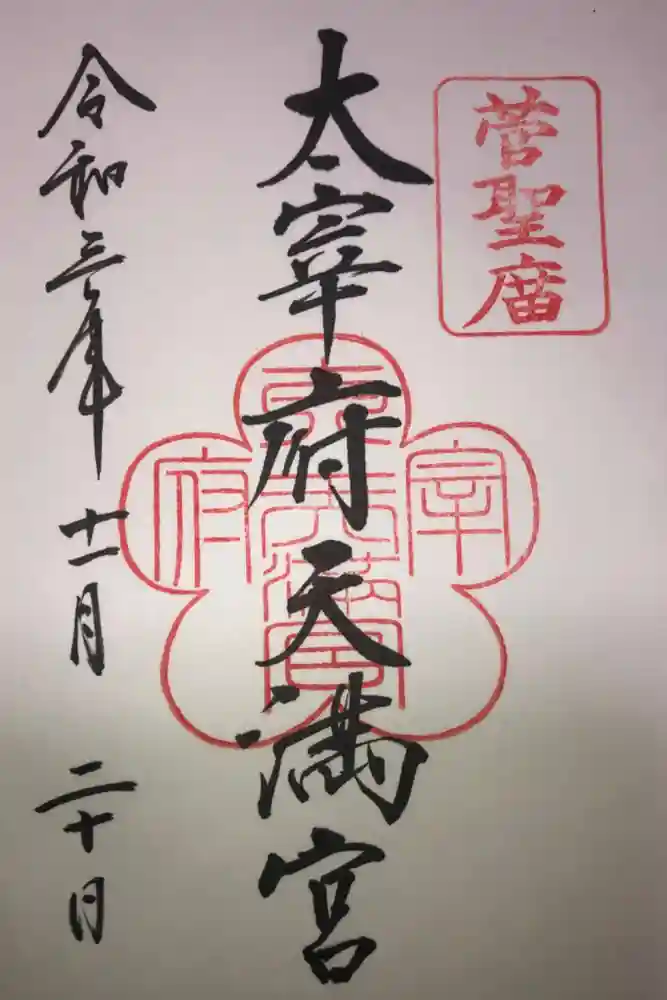 菅聖廟
太宰府天満宮
宰府
天満宮
令和三年 十一月 二十日